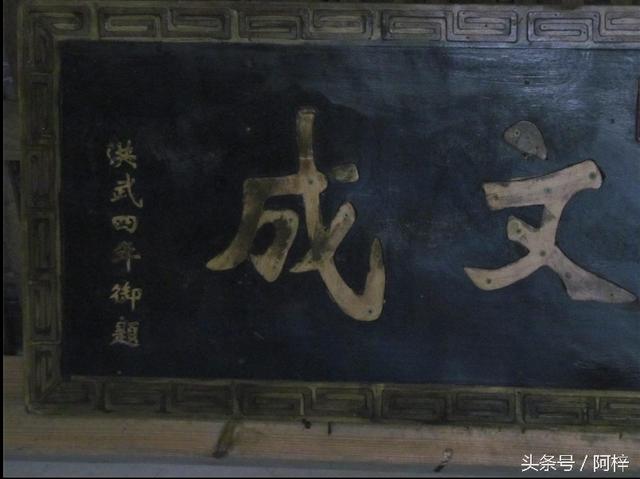 文成
洪武四年御題
头条号 / 阿梓